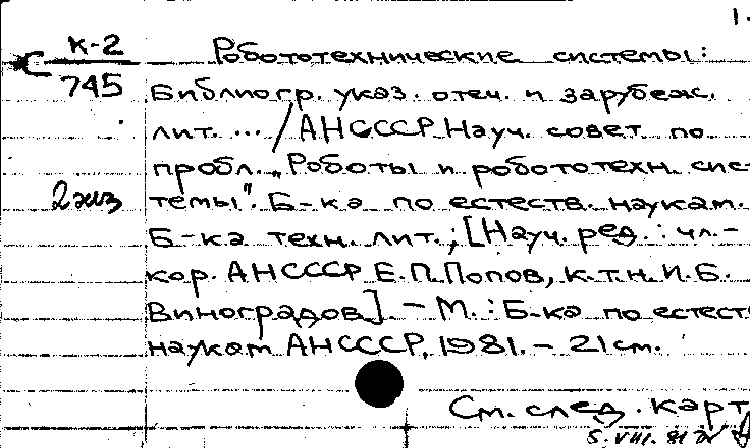 1.
К-2
С 745
2 экз
Робототехнические системы:
Библиогр. указ. отеч. и зарубеж.
лит. ... / АН СССР. Науч. совет по
пробл. „Роботы и робототехн. сис-
темы". Б-ка по естеств. наукам.
Б-ка техн. лит.; [Науч. ред.: чл.-
кор. АН СССР Е.П. Попов, к.т.н. И.Б.
Виноградов]. - М.: Б-ка по естеств
наукам АН СССР, 1981. - 21 см.
См. след. карт
5.VIII.81